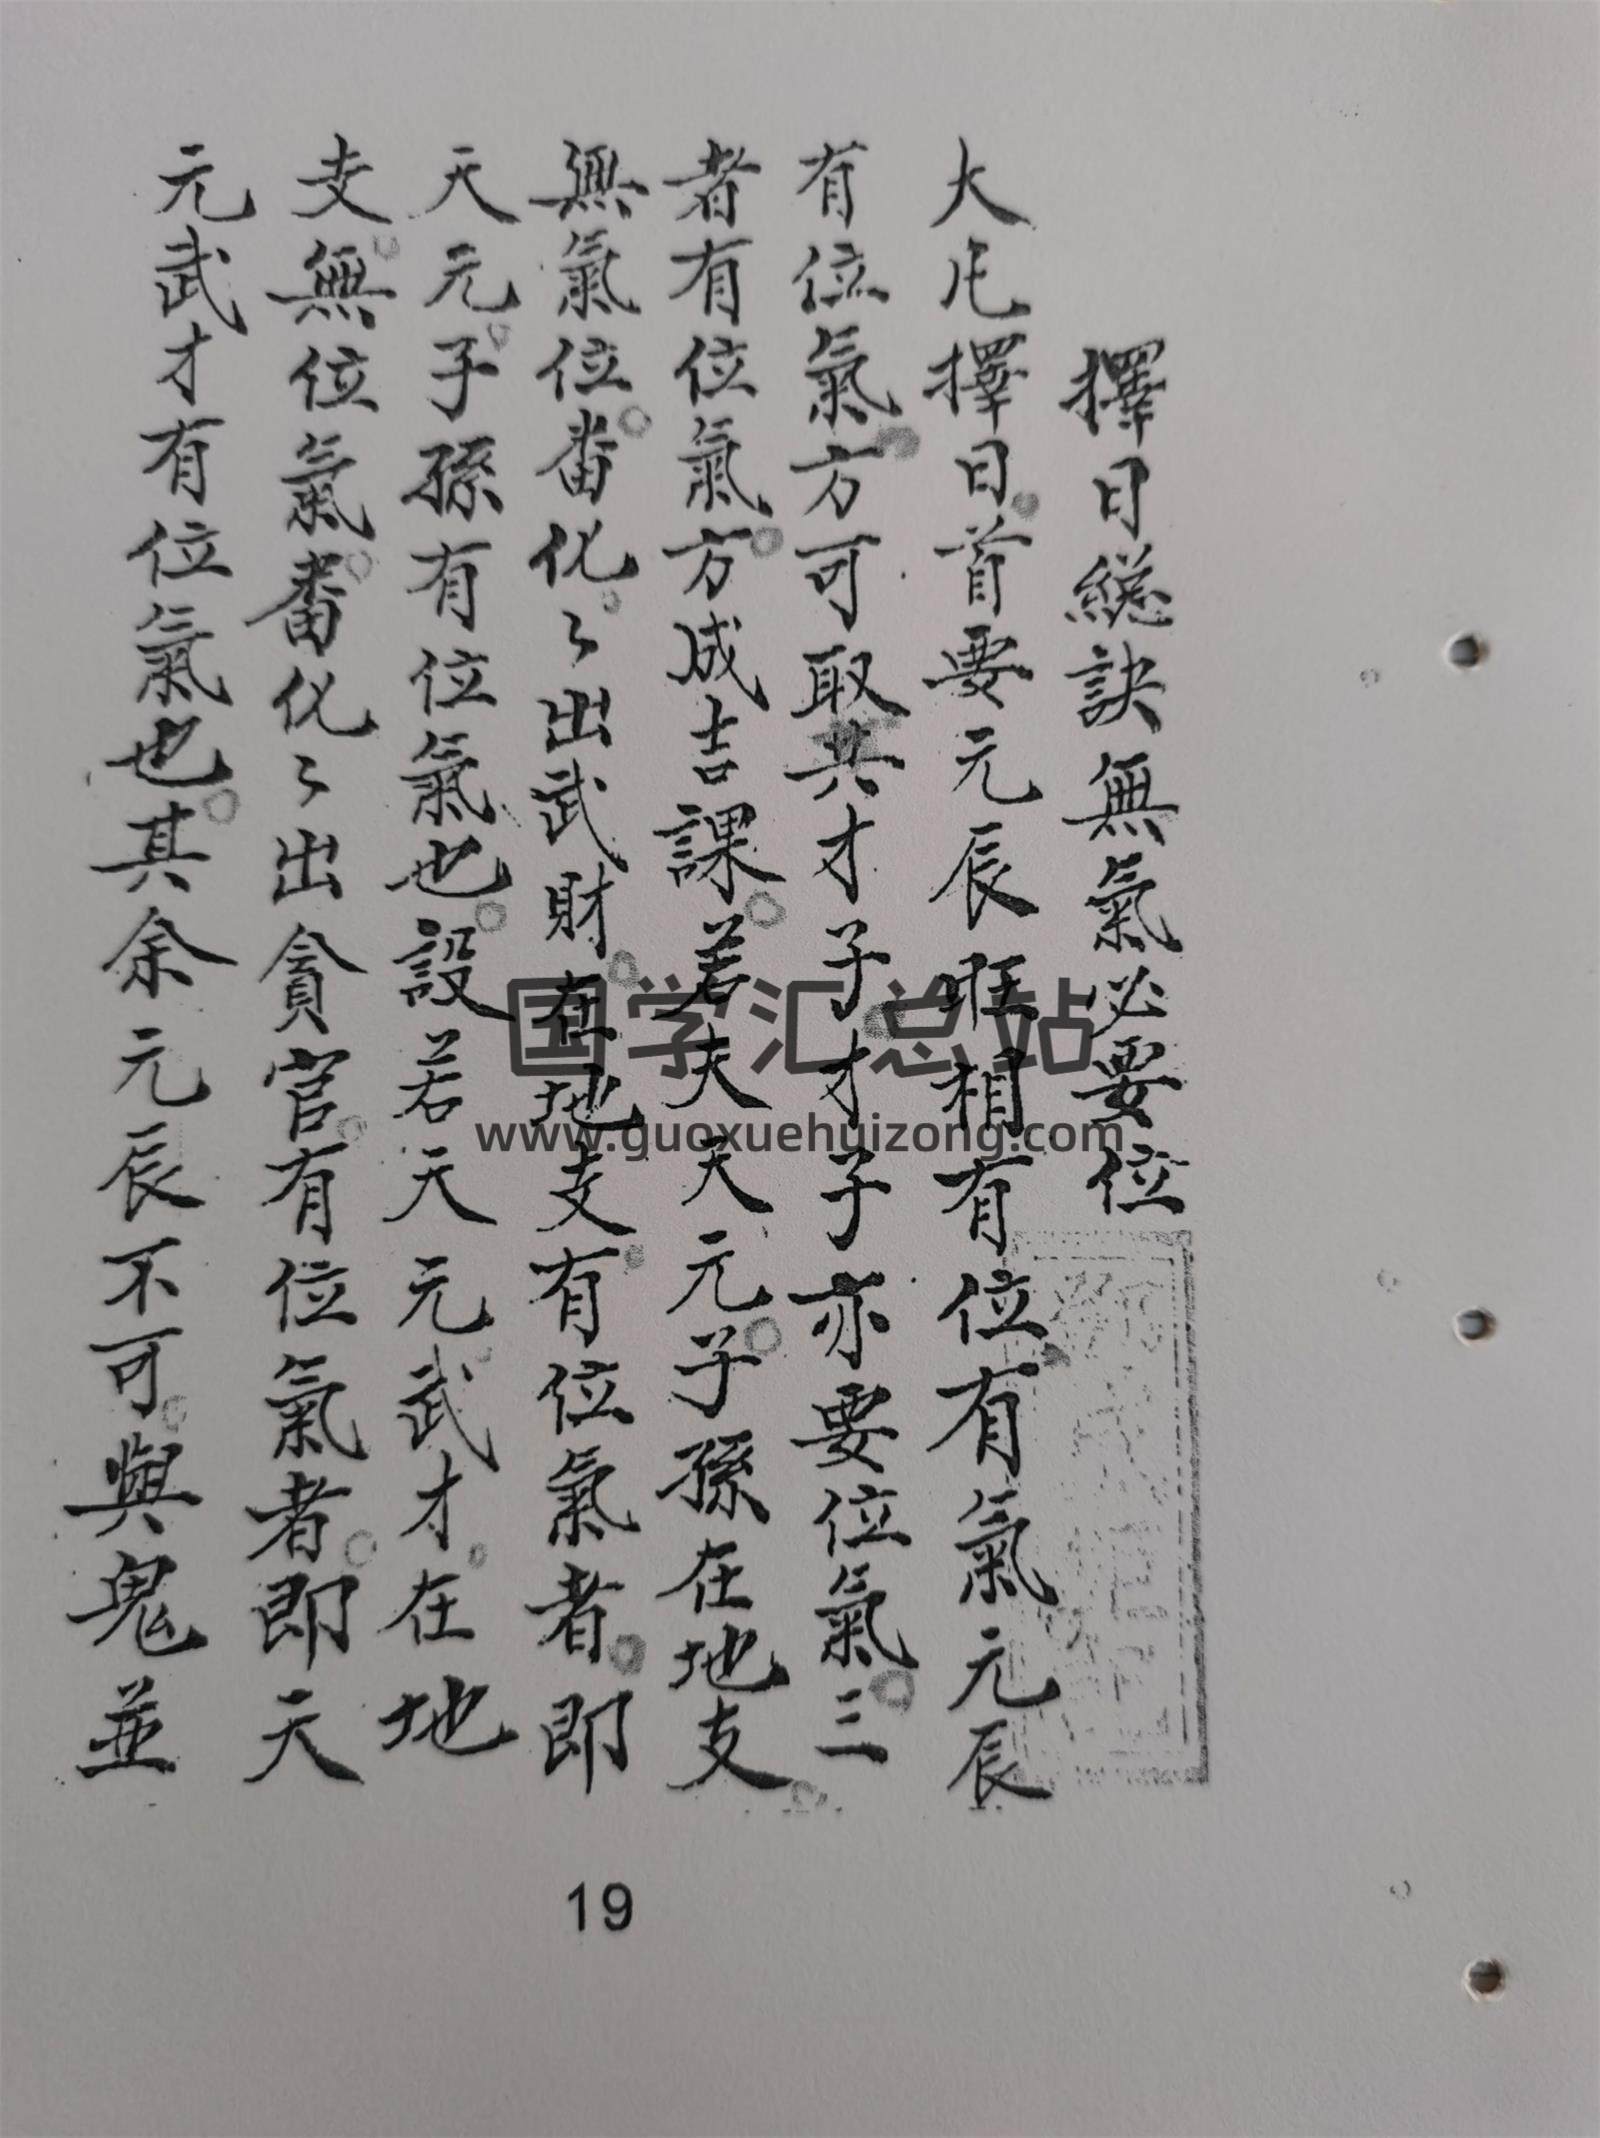 擇日縂訣無氣必要位
大凡擇日首要元辰旺相有位有氣元辰
有位氣方可取共才子才子亦要位氣三
者有位氣方成吉課若夫天元子孫在地支
無氣位畨化〻出武財在地支有位氣者即
天元子孫有位氣也設若天元武才在地
支無位氣畨化〻出貪官有位氣者即天
元武才有位氣也其余元辰不可與鬼並
国学汇总站
www.guoxuehuizong.com
19